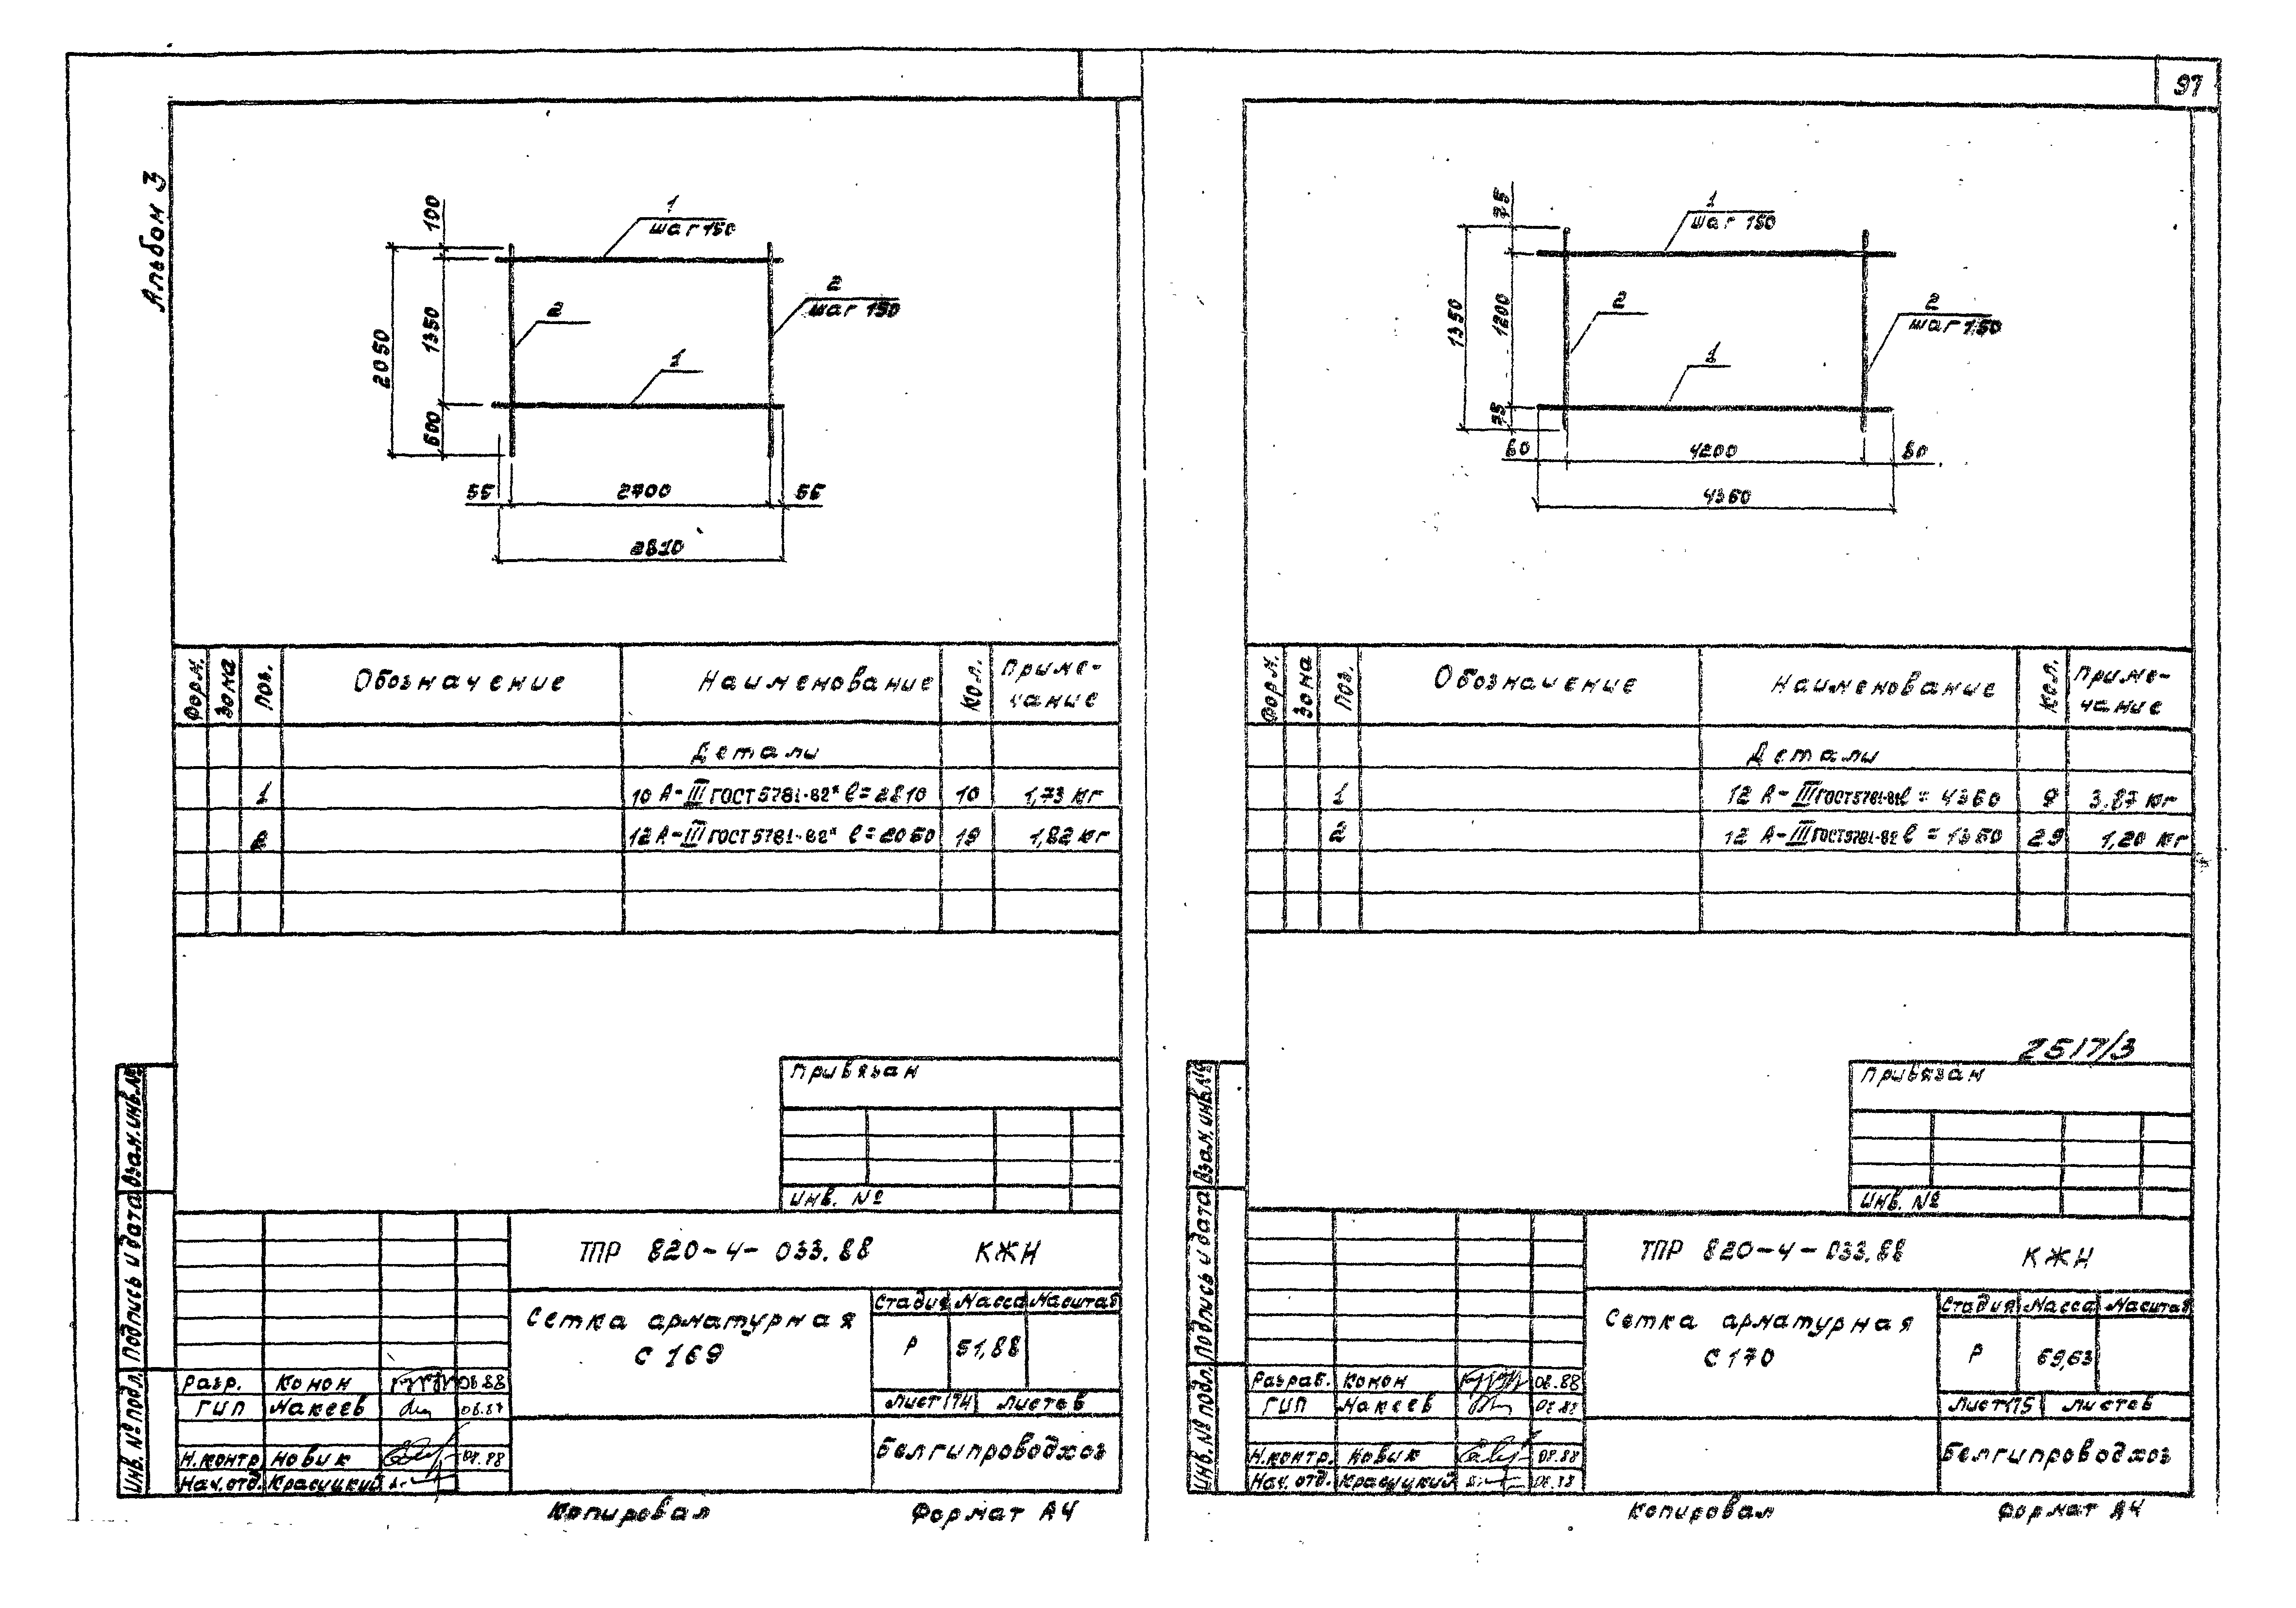 97
Альбом 3
100
1350
600
2050
1
шаг 150
2
2
шаг 150
1
55
2700
55
2810
Форм.
Зона
Поз.
Обозначение
Наименование
Кол.
Приме-
чание
Детали
1 10 А-III ГОСТ 5781-82* ℓ=2810 10 1,73 кг
2 12 А-III ГОСТ 5781-82* ℓ=2050 19 1,82 кг
Привязан
Инв. №
ТПР 820-4-033.88 КЖИ
Сетка арматурная
С 169
Стадия Масса Масштаб
Р 51,88
Лист 174 Листов
Белгипроводхоз
Разр. Конон 08.88
ГИП Макеев 08.87
Н.контр. Новик 07.88
Нач.отд. Красуцкий
Взам.инв.№
Подпись и дата
Инв. № подл.
Копировал
Формат А4
75
1200
75
1350
1
шаг 150
2
2
шаг 150
1
80
4200
80
4360
Форм.
Зона
Поз.
Обозначение
Наименование
Кол.
Приме-
чание
Детали
1 12 А-III ГОСТ 5781-82 ℓ = 4360 9 3.87 кг
2 12 А-III ГОСТ 5781-82 ℓ = 1350 29 1,20 кг
2517/3
Привязан
Инв. №
ТПР 820-4-033.88 КЖИ
Сетка арматурная
С 170
Стадия Масса Масштаб
Р 69,63
Лист 175 Листов
Белгипроводхоз
Разраб. Конон 08.88
ГИП Макеев 08.88
Н.контр. Новик 08.88
Нач. отд. Красуцкий 08.88
Взам.инв.№
Подпись и дата
Инв. № подл.
Копировал
Формат А4